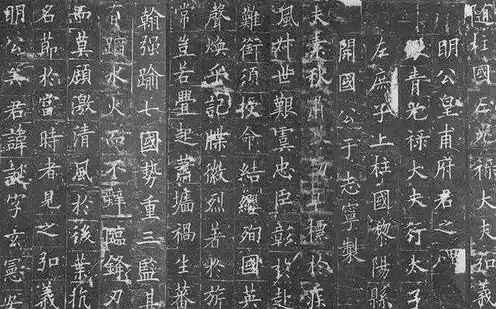 隨柱國左光祿大夫弘義
明公皇甫府君之碑
青光祿大夫行太子
左庶子上柱國黎陽縣
開國公于志寧製
夫素秋肅勁草標於疾
風叔世艱虞忠臣彰於赴
難銜須授命結纓殉國英
聲煥乎記牒徽烈著於旂
常豈若釁起蕭墻禍生蕃
翰强踰七國勢重三監其
有蹈水火而不辭臨鋒刃
而莫顧激清風於後葉抗
名節於當時者見之弘義
明公矣君諱誕字玄憲安